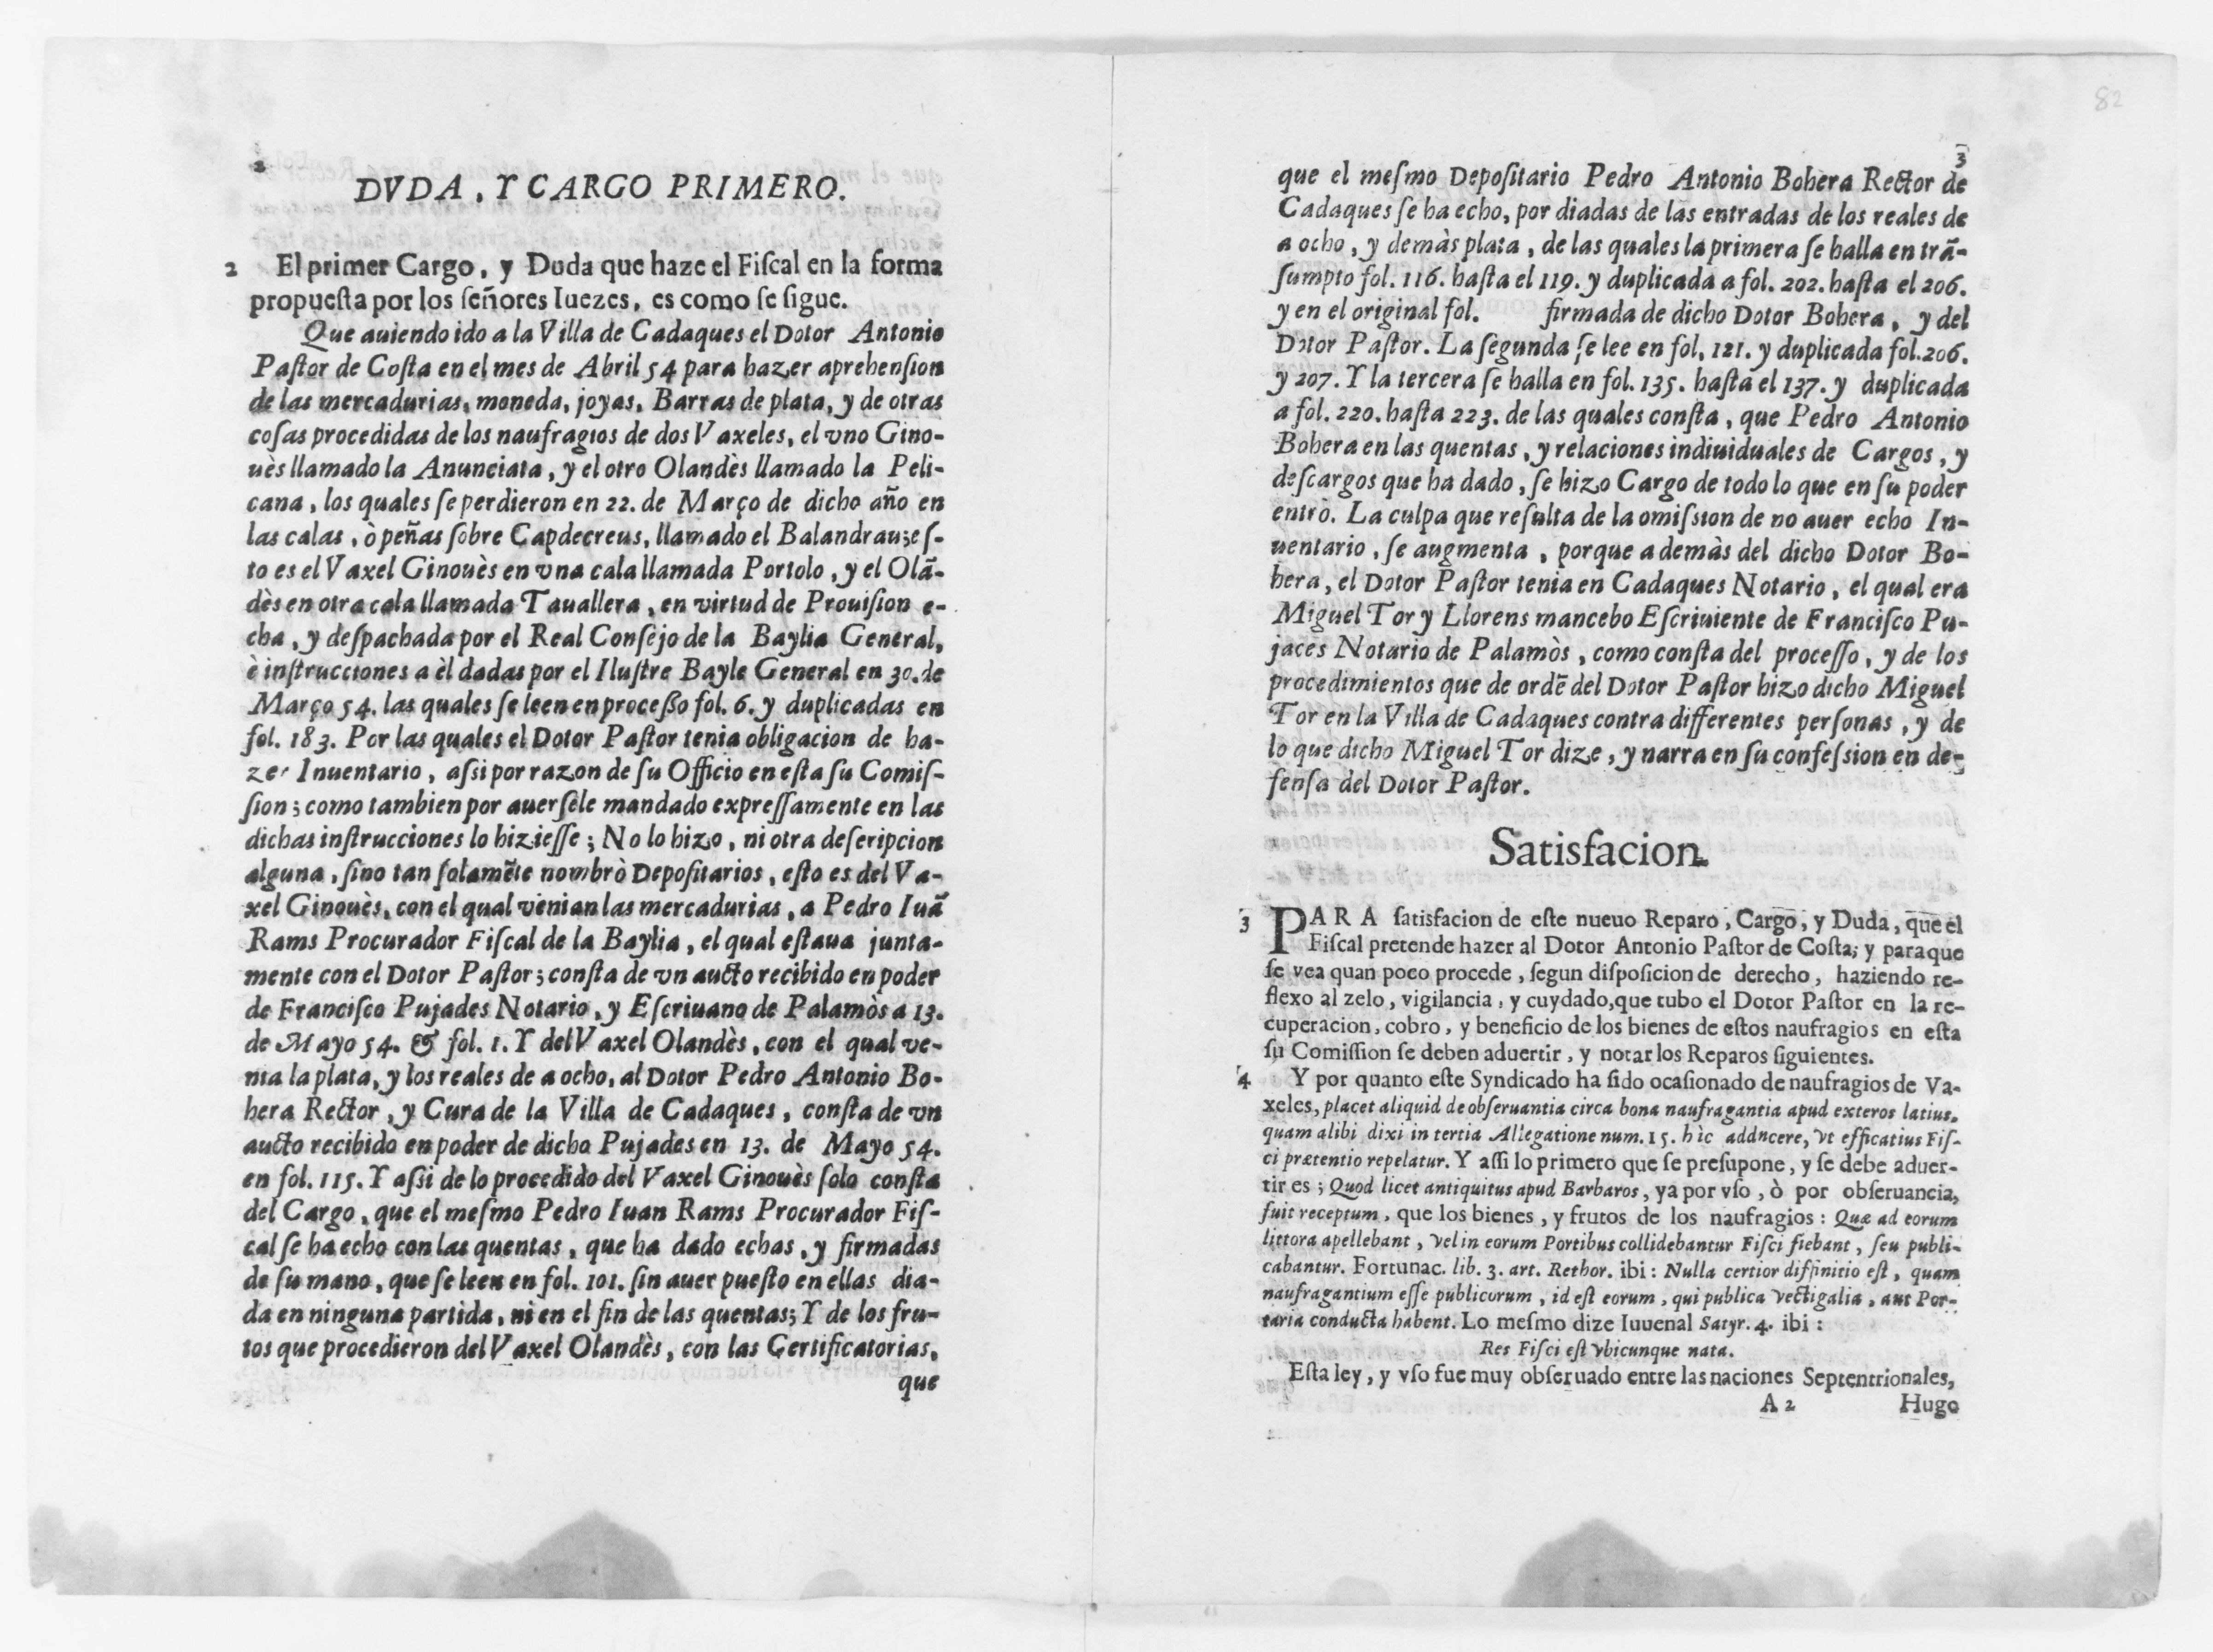 2
DVDA, Y CARGO PRIMERO.
2 El primer Cargo, y Duda que haze el Fiſcal en la forma
propueſta por los ſeñores Iuezes, es como ſe ſigue.
Que auiendo ido a la Villa de Cadaques el Dotor Antonio
Paſtor de Coſta en el mes de Abril 54 para hazer aprehenſion
de las mercadurias, moneda, joyas, Barras de plata, y de otras
coſas procedidas de los naufragios de dos Vaxeles, el vno Gino-
uès llamado la Anunciata, y el otro Olandès llamado la Peli-
cana, los quales ſe perdieron en 22. de Março de dicho año en
las calas, ò peñas ſobre Capdecreus, llamado el Balandrau; eſ-
to es el Vaxel Ginouès en vna cala llamada Portolo, y el Olā-
dès en otra cala llamada Tauallera, en virtud de Prouiſion e-
cha, y deſpachada por el Real Conſejo de la Baylia General,
è inſtrucciones a èl dadas por el Iluſtre Bayle General en 30. de
Março 54. las quales ſe leen en proceßo fol. 6. y duplicadas en
fol. 183. Por las quales el Dotor Paſtor tenia obligacion de ha-
zer Inuentario, aſsi por razon de ſu Officio en eſta ſu Comiſ-
ſion; como tambien por auerſele mandado expreſſamente en las
dichas inſtrucciones lo hizieſſe; No lo hizo, ni otra deſcripcion
alguna, ſino tan ſolamēte nombrò Depoſitarios, eſto es del Va-
xel Ginouès, con el qual venian las mercadurias, a Pedro Iuā
Rams Procurador Fiſcal de la Baylia, el qual eſtaua junta-
mente con el Dotor Paſtor; conſta de vn aucto recibido en poder
de Franciſco Pujades Notario, y Eſcriuano de Palamòs a 13.
de Mayo 54. & fol. 1. Y del Vaxel Olandès, con el qual ve-
nia la plata, y los reales de a ocho, al Dotor Pedro Antonio Bo-
hera Rector, y Cura de la Villa de Cadaques, conſta de vn
aucto recibido en poder de dicho Pujades en 13. de Mayo 54.
en fol. 115. Y aſsi de lo procedido del Vaxel Ginouès ſolo conſta
del Cargo, que el meſmo Pedro Iuan Rams Procurador Fiſ-
cal ſe ha echo con las quentas, que ha dado echas, y firmadas
de ſu mano, que ſe leen en fol. 101. ſin auer pueſto en ellas dia-
da en ninguna partida, ni en el fin de las quentas; Y de los fru-
tos que procedieron del Vaxel Olandès, con las Certificatorias,
que
82
3
que el meſmo Depoſitario Pedro Antonio Bohera Rector de
Cadaques ſe ha echo, por diadas de las entradas de los reales de
a ocho, y demàs plata, de las quales la primera ſe halla en trā-
ſumpto fol. 116. haſta el 119. y duplicada a fol. 202. haſta el 206.
y en el original fol. firmada de dicho Dotor Bohera, y del
Dotor Paſtor. La ſegunda ſe lee en fol, 121. y duplicada fol. 206.
y 207. Y la tercera ſe halla en fol. 135. haſta el 137. y duplicada
a fol. 220. haſta 223. de las quales conſta, que Pedro Antonio
Bohera en las quentas, y relaciones indiuiduales de Cargos, y
deſcargos que ha dado, ſe hizo Cargo de todo lo que en ſu poder
entrò. La culpa que reſulta de la omiſsion de no auer echo In-
uentario, ſe augmenta, porque a demàs del dicho Dotor Bo-
hera, el Dotor Paſtor tenia en Cadaques Notario, el qual era
Miguel Tor y Llorens mancebo Eſcriuiente de Franciſco Pu-
jaces Notario de Palamòs, como conſta del proceſſo, y de los
procedimientos que de ordē del Dotor Paſtor hizo dicho Miguel
Tor en la Villa de Cadaques contra differentes perſonas, y de
lo que dicho Miguel Tor dize, y narra en ſu confeſsion en de-
fenſa del Dotor Paſtor.
Satisfacion.
3 PARA ſatisfacion de eſte nueuo Reparo, Cargo, y Duda, que el
Fiſcal pretende hazer al Dotor Antonio Paſtor de Coſta; y para que
ſe vea quan poco procede, ſegun diſpoſicion de derecho, haziendo re-
flexo al zelo, vigilancia, y cuydado, que tubo el Dotor Paſtor en la re-
cuperacion, cobro, y beneficio de los bienes de eſtos naufragios en eſta
ſu Comiſſion ſe deben aduertir, y notar los Reparos ſiguientes.
4 Y por quanto eſte Syndicado ha ſido ocaſionado de naufragios de Va-
xeles, placet aliquid de obſeruantia circa bona naufragantia apud exteros latius,
quam alibi dixi in tertia Allegatione num. 15. hìc adducere, vt efficatius Fiſ-
ci prætentio repelatur. Y aſſi lo primero que ſe preſupone, y ſe debe aduer-
tir es; Quod licet antiquitus apud Barbaros, ya por vſo, ò por obſeruancia,
fuit receptum, que los bienes, y frutos de los naufragios: Quæ ad eorum
littora apellebant, vel in eorum Portibus collidebantur Fiſci fiebant, ſeu publi-
cabantur. Fortunac. lib. 3. art. Rethor. ibi: Nulla certior diffinitio eſt, quam
naufragantium eſſe publicorum, id eſt eorum, qui publica vectigalia, aut Por-
taria conducta habent. Lo meſmo dize Iuuenal Satyr. 4. ibi:
Res Fiſci eſt vbicunque nata.
Eſta ley, y vſo fue muy obſeruado entre las naciones Septentrionales,
A 2 Hugo